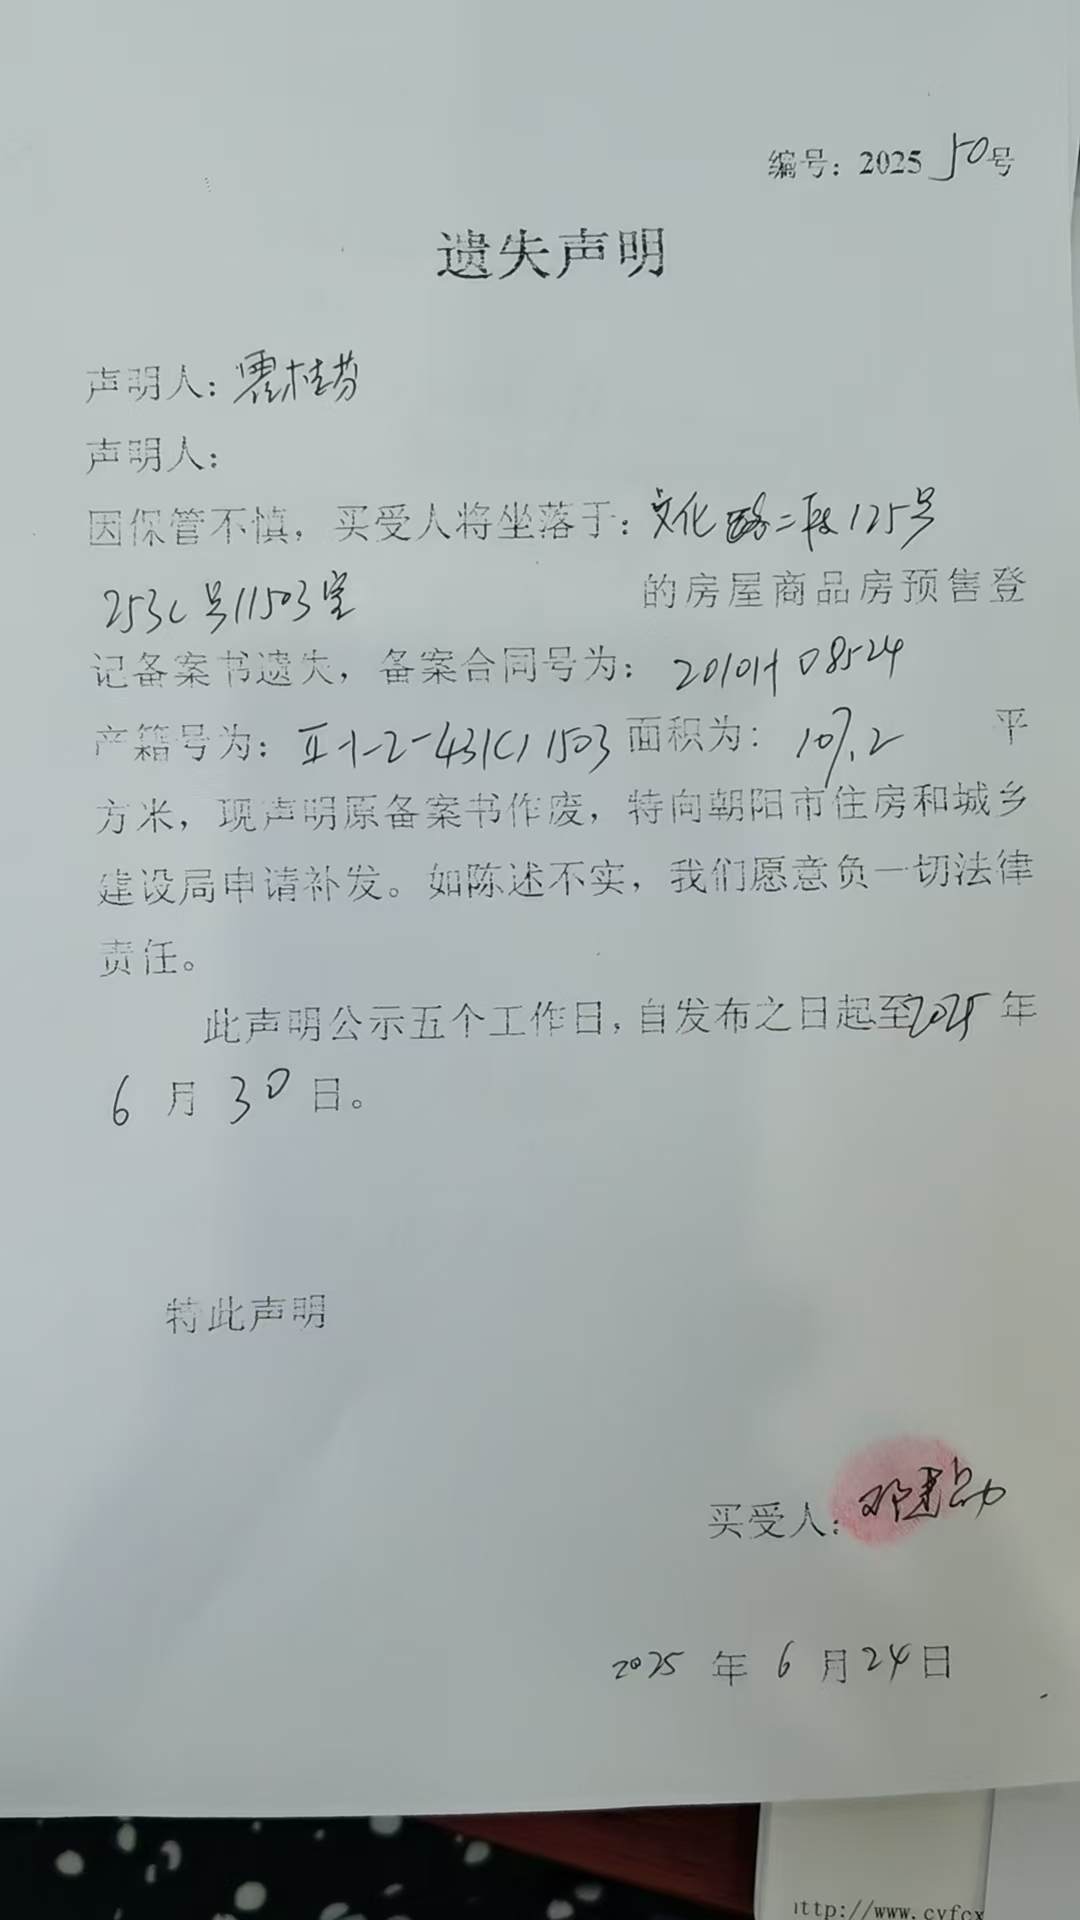 编号：2025 50号
遗失声明
声明人：霍桂芬
声明人：
因保管不慎，买受人将坐落于：文化路二段125号
253C号11503室 的房屋商品房预售登
记备案书遗失，备案合同号为：2010H08524
产籍号为：Ⅱ-1-2-431C11503 面积为：107.2 平
方米，现声明原备案书作废，特向朝阳市住房和城乡
建设局申请补发。如陈述不实，我们愿意负一切法律
责任。
此声明公示五个工作日，自发布之日起至2025年
6月30日。
特此声明
买受人：
2025年6月24日
http://www.cyfcx